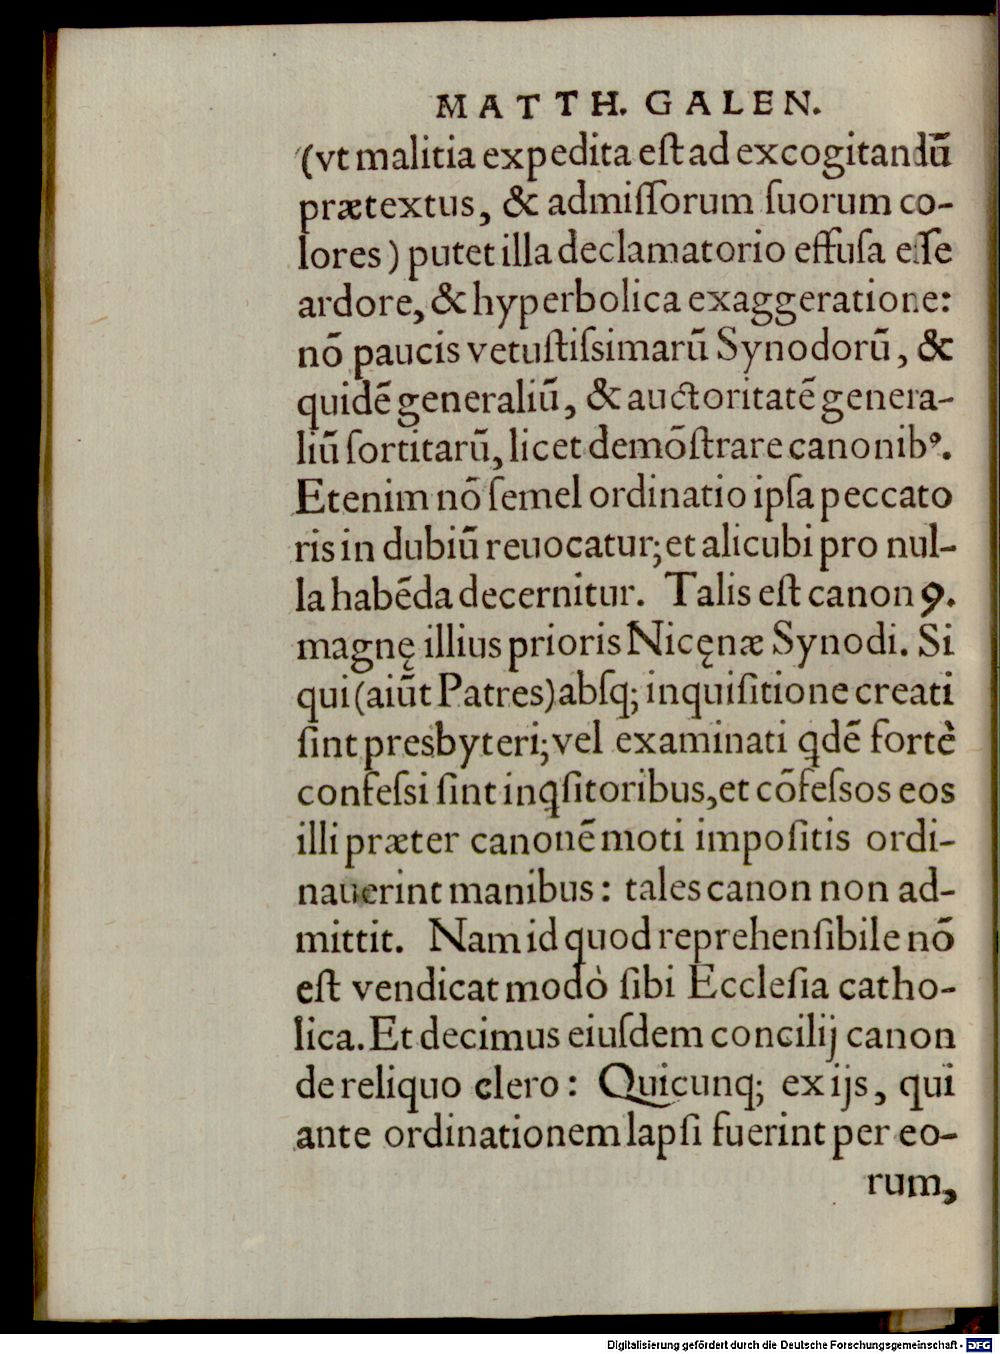 MATTH. GALEN.
(vt malitia expedita eſt ad excogitandū
prætextus, & admiſſorum ſuorum co-
lores) putet illa declamatorio effuſa eſſe
ardore, & hyperbolica exaggeratione:
nō paucis vetuſtiſsimarū Synodorū, &
quidē generaliū, & auctoritatē genera-
liū ſortitarū, licet demōſtrare canonibꝰ.
Etenim nō ſemel ordinatio ipſa peccato
ris in dubiū reuocatur; et alicubi pro nul-
la habēda decernitur. Talis eſt canon 9.
magnę illius prioris Nicęnæ Synodi. Si
qui (aiūt Patres) abſq; inquiſitione creati
ſint presbyteri; vel examinati qdē fortè
confeſsi ſint inqſitoribus, et cōfeſsos eos
illi præter canonē moti impoſitis ordi-
nauerint manibus: tales canon non ad-
mittit. Nam id quod reprehenſibile nō
eſt vendicat modò ſibi Eccleſia catho-
lica. Et decimus eiuſdem concilij canon
de reliquo clero: Quicunq; ex ijs, qui
ante ordinationem lapſi fuerint per eo-
rum,
Digitalisierung gefördert durch die Deutsche Forschungsgemeinschaft - DFG